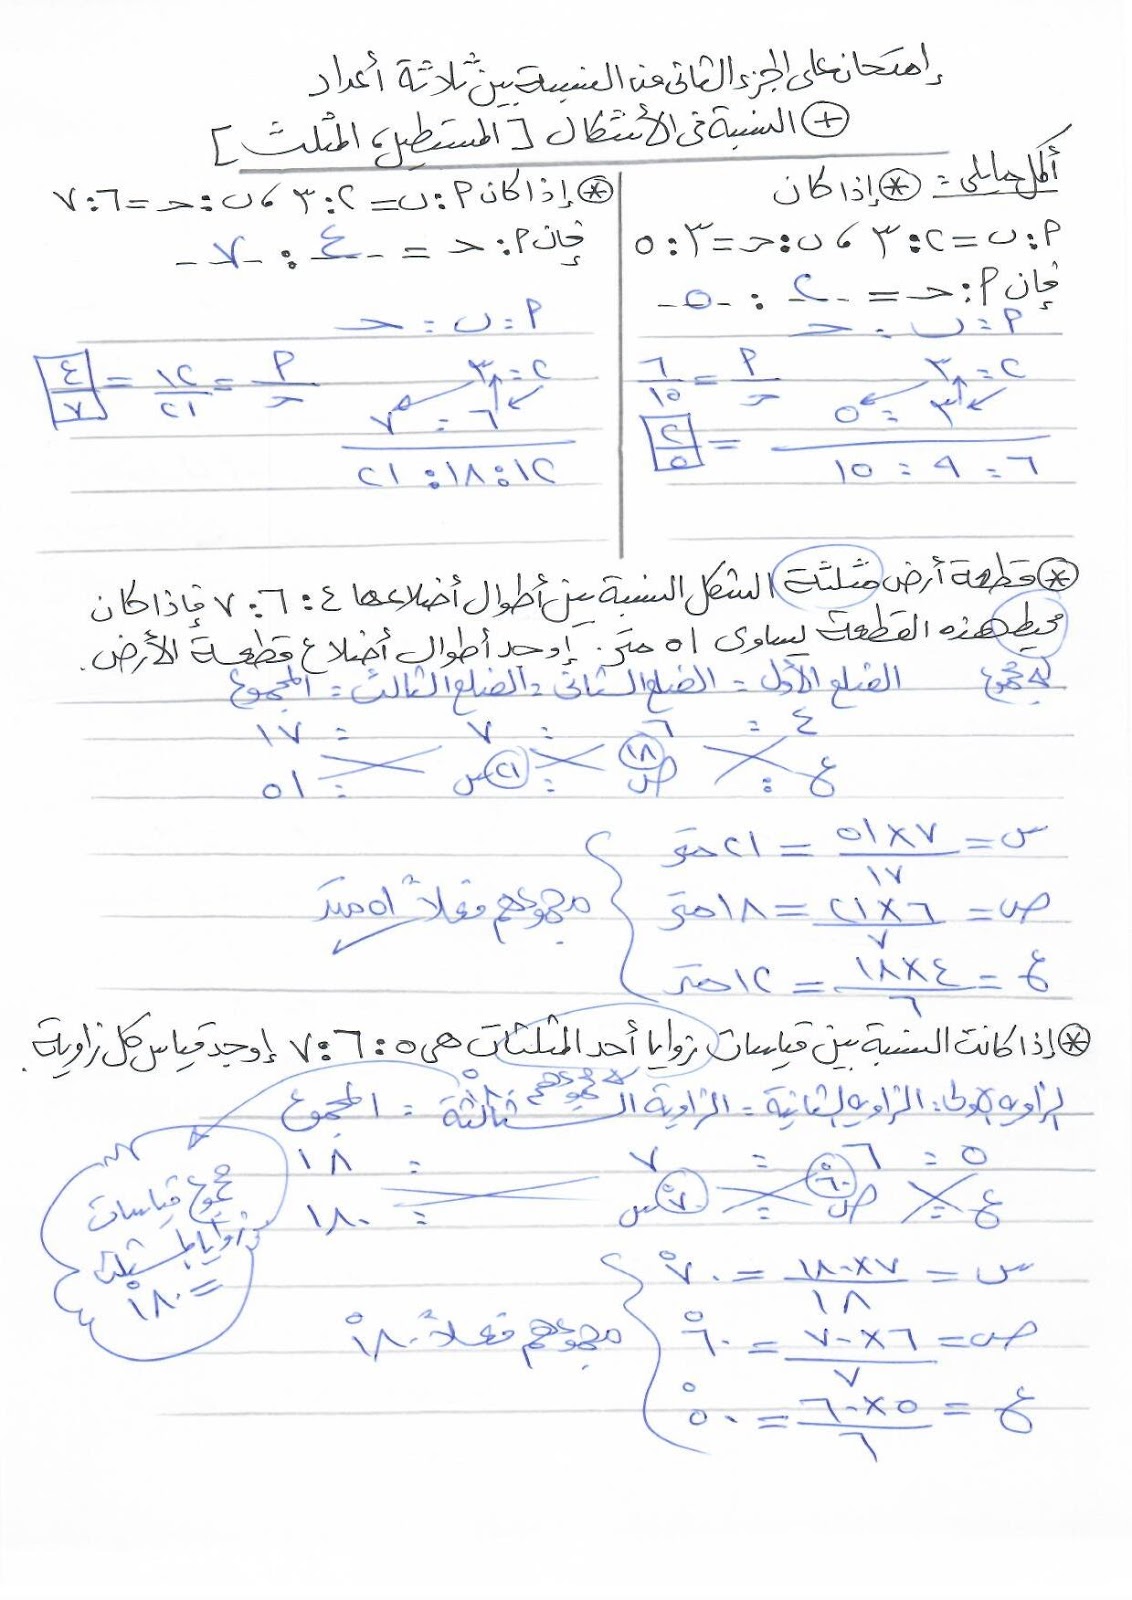 إمتحان على الجزء الثانى من النسبة بين ثلاثة أعداد
+ النسبة فى الأشكال [المستطيل، المثلث]
أكمل مايلى :- * إذا كان
أ : ب = ٢ : ٣ ، ب : حـ = ٣ : ٥
فإن أ : حـ = ٢ : ٥
أ : ب : حـ
٢ : ٣
٣ : ٥
٦ : ٩ : ١٥
أ/حـ = ٦/١٥
= ٢/٥
* إذا كان أ : ب = ٢ : ٣ ، ب : حـ = ٦ : ٧
فإن أ : حـ = ٤ : ٧
أ : ب : حـ
٢ : ٣
٦ : ٧
١٢ : ١٨ : ٢١
أ/حـ = ١٢/٢١ = ٤/٧
* قطعة أرض مثلثة الشكل النسبة بين أطوال أضلاعها ٤ : ٦ : ٧ فإذا كان
محيط هذه القطعة يساوى ٥١ متر. إوجد أطوال أضلاع قطعة الأرض.
مجموع
الضلع الأول : الضلع الثانى : الضلع الثالث : المجموع
٤ : ٦ : ٧ : ١٧
ع : ص ١٨ : س ٢١ : ٥١
س = ٧×٥١/١٧ = ٢١ متر
ص = ٦×٢١/٧ = ١٨ متر
ع = ٤×١٨/٦ = ١٢ متر
مجموعهم فعلاً ٥١ متر
* إذا كانت النسبة بين قياسات زوايا أحد المثلثات هى ٥ : ٦ : ٧ إوجد قياس كل زاوية.
مجموعهم ١٨٠°
الزاويه الاولى : الزاويه الثانية : الزاوية الثالثة : المجموع
٥ : ٦ : ٧ : ١٨
ع : ص ٦٠° : س ٧٠° : ١٨٠
مجموع قياسات
زوايا المثلث
= ١٨٠°
س = ٧×١٨٠/١٨ = ٧٠°
ص = ٦×٧٠/٧ = ٦٠°
ع = ٥×٦٠/٦ = ٥٠°
مجموعهم فعلاً ١٨٠°